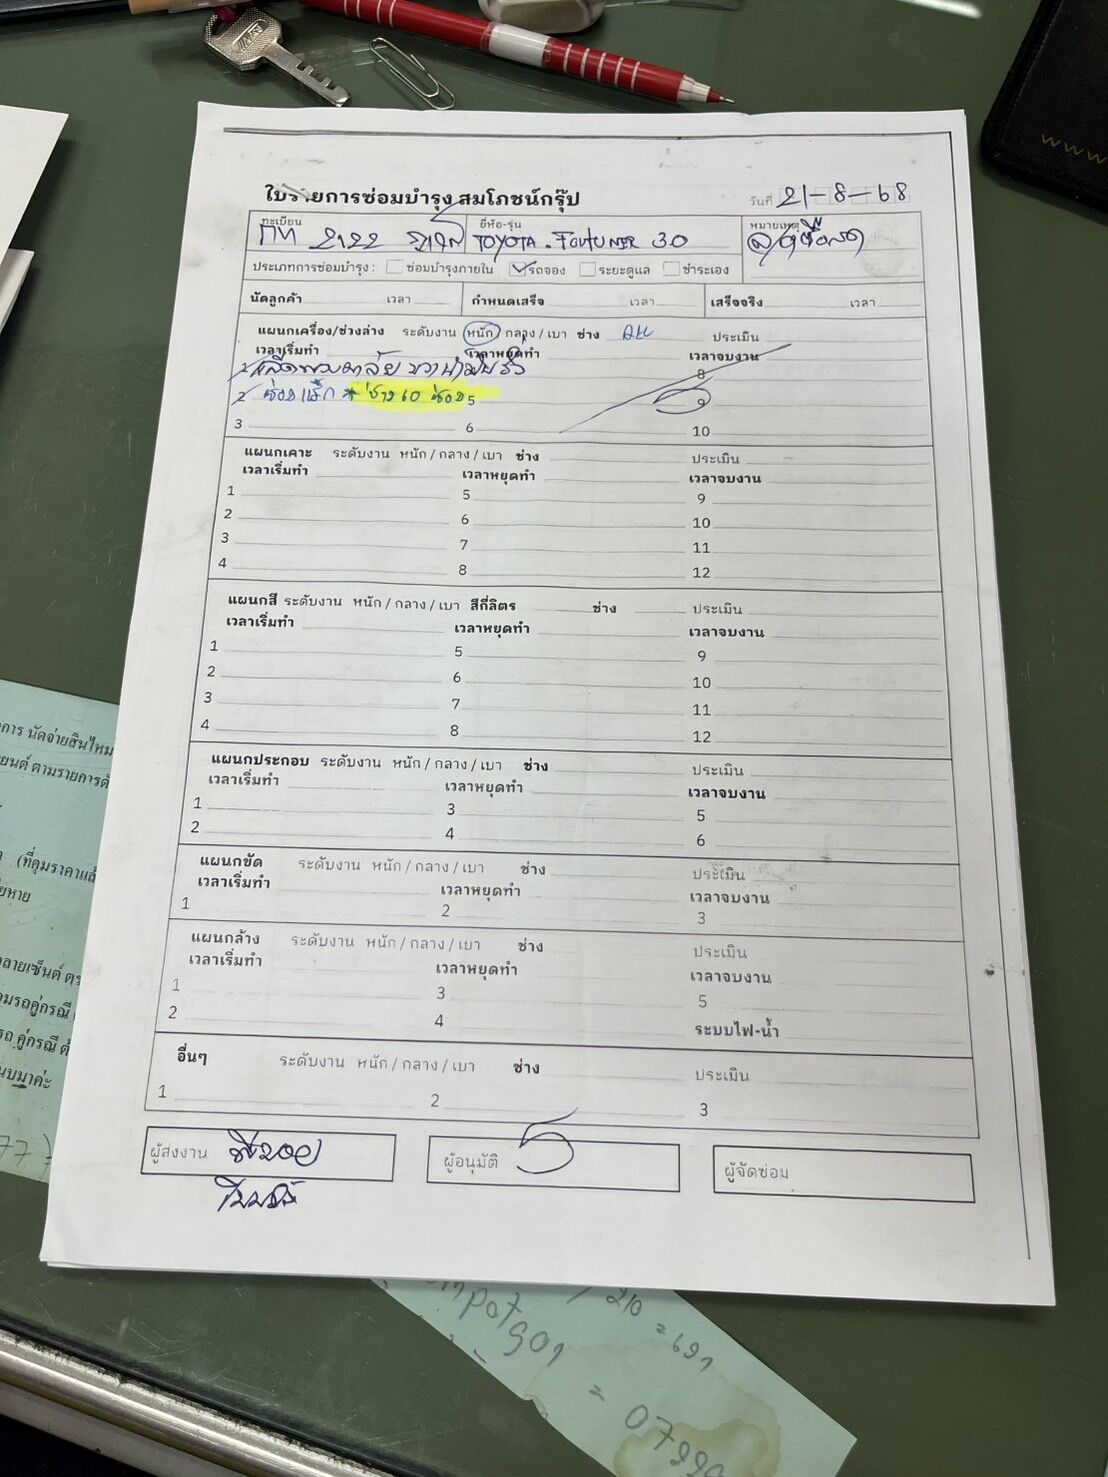 ใบรายการซ่อมบำรุง สมโภชน์กรุ๊ป
วันที่ 21-8-68
ทะเบียน กท 2122 ภูเก็ต
ยี่ห้อ-รุ่น TOYOTA . FORTUNER 3.0
หมายเหตุ
ประเภทการซ่อมบำรุง : ซ่อมบำรุงภายใน รถจอง ระยะดูแล ชำระเอง
นัดลูกค้า เวลา กำหนดเสร็จ เวลา เสร็จจริง เวลา
แผนกเครื่อง/ช่วงล่าง ระดับงาน หนัก / กลาง / เบา ช่าง ประเมิน
เวลาเริ่มทำ เวลาหยุดทำ เวลาจบงาน
1 8
2 5 9
3 6 10
แผนกเคาะ ระดับงาน หนัก / กลาง / เบา ช่าง ประเมิน
เวลาเริ่มทำ เวลาหยุดทำ เวลาจบงาน
1 5 9
2 6 10
3 7 11
4 8 12
แผนกสี ระดับงาน หนัก / กลาง / เบา สีกี่ลิตร ช่าง ประเมิน
เวลาเริ่มทำ เวลาหยุดทำ เวลาจบงาน
1 5 9
2 6 10
3 7 11
4 8 12
แผนกประกอบ ระดับงาน หนัก / กลาง / เบา ช่าง ประเมิน
เวลาเริ่มทำ เวลาหยุดทำ เวลาจบงาน
1 3 5
2 4 6
แผนกขัด ระดับงาน หนัก / กลาง / เบา ช่าง ประเมิน
เวลาเริ่มทำ เวลาหยุดทำ เวลาจบงาน
1 2 3
แผนกล้าง ระดับงาน หนัก / กลาง / เบา ช่าง ประเมิน
เวลาเริ่มทำ เวลาหยุดทำ เวลาจบงาน
1 3 5
2 4 ระบบไฟ-น้ำ
อื่นๆ ระดับงาน หนัก / กลาง / เบา ช่าง ประเมิน
1 2 3
ผู้ส่งงาน ผู้อนุมัติ ผู้จัดซ่อม
การ นัดจ่ายสินไหม
ยนต์ ตามรายการดั
(ที่คุมราคาแล้
หาย
ลายเซ็นต์
มรถคู่กรณี
รถ คู่กรณี ต้
นบมาค่ะ